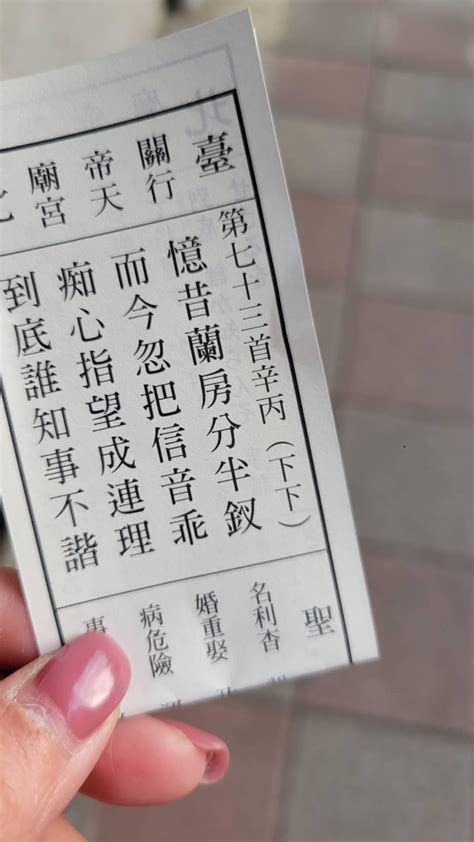 臺
關行
帝天
廟宮
第七十三首辛丙（下下）
憶昔蘭房分半釵
而今忽把信音乖
痴心指望成連理
到底誰知事不諧
聖
名利杳
婚重娶
病危險